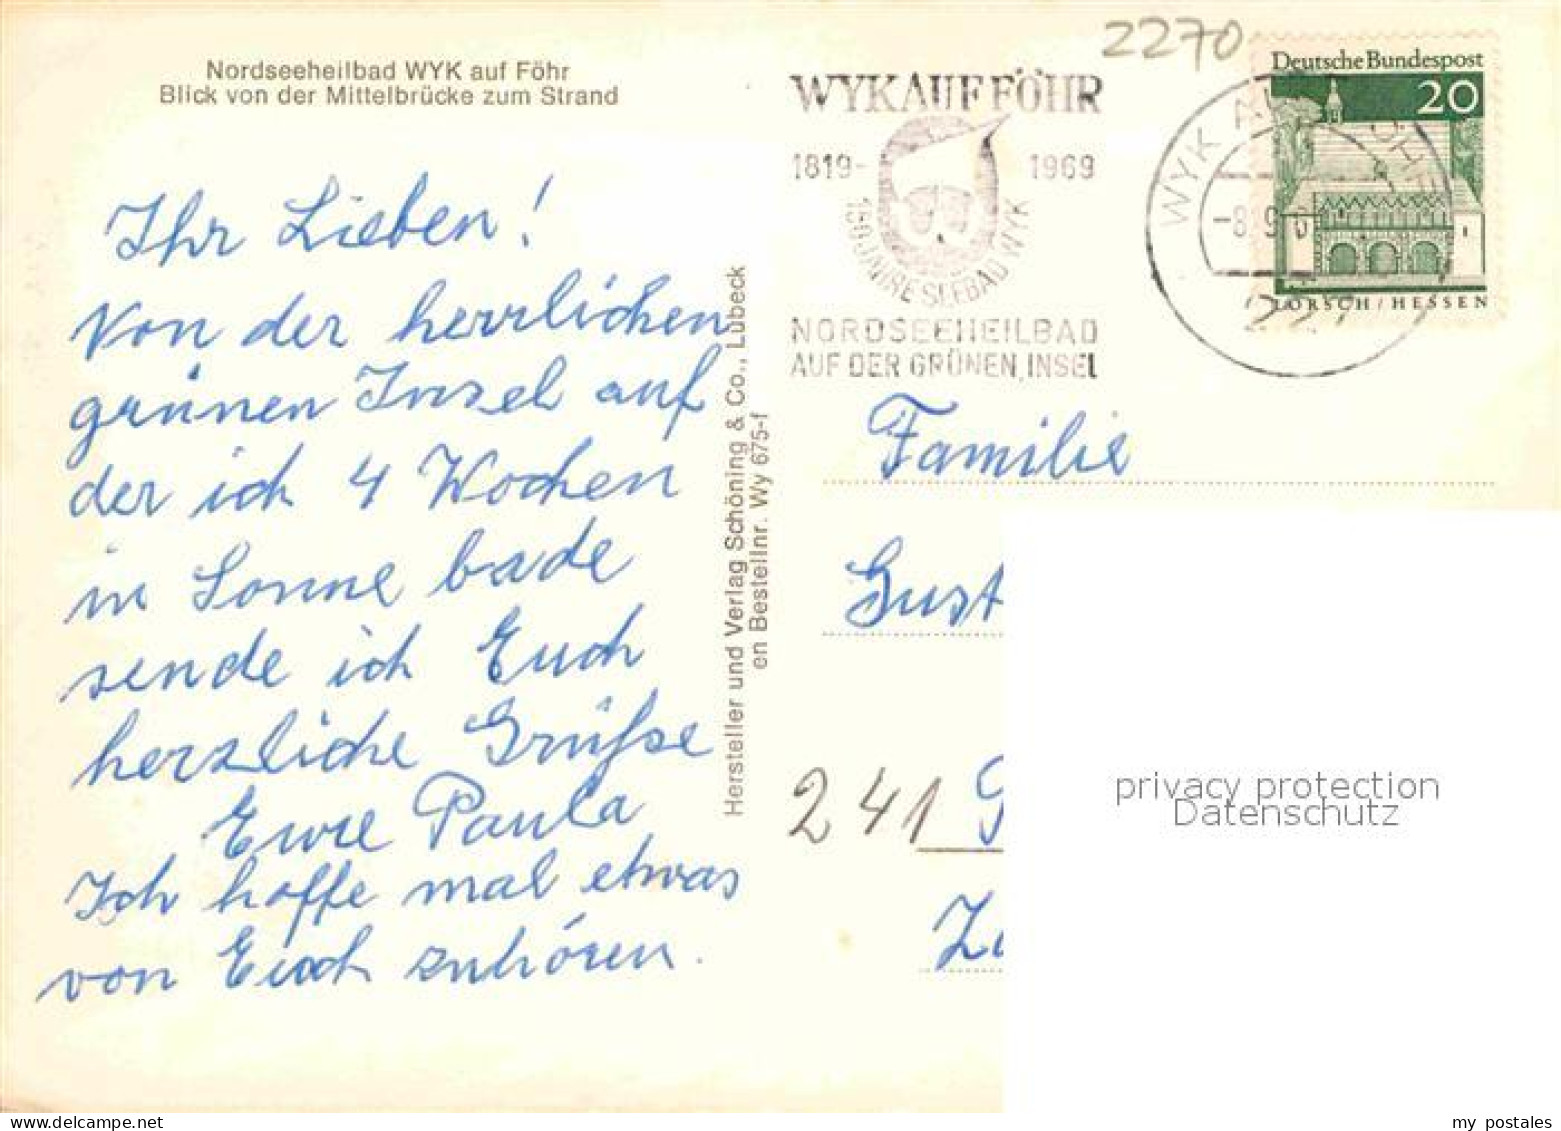 Nordseeheilbad WYK auf Föhr
Blick von der Mittelbrücke zum Strand
Ihr Lieben!
Von der herrlichen
grünen Insel auf
der ich 4 Wochen
in Sonne bade
sende ich Euch
herzliche Grüße
Eure Paula
Ich hoffe mal etwas
von Euch zuhören.
Hersteller und Verlag Schöning & Co., Lübeck
en Bestellnr. Wy 675-f
2270
WYK AUF FÖHR
1819- 1969
150 JAHRE SEEBAD WYK
NORDSEEHEILBAD
AUF DER GRÜNEN INSEL
WYK AUF FÖHR
-8.9.6
227
Deutsche Bundespost
20
LORSCH/HESSEN
Familie
Gust
241 G
Za
privacy protection
Datenschutz
my postales